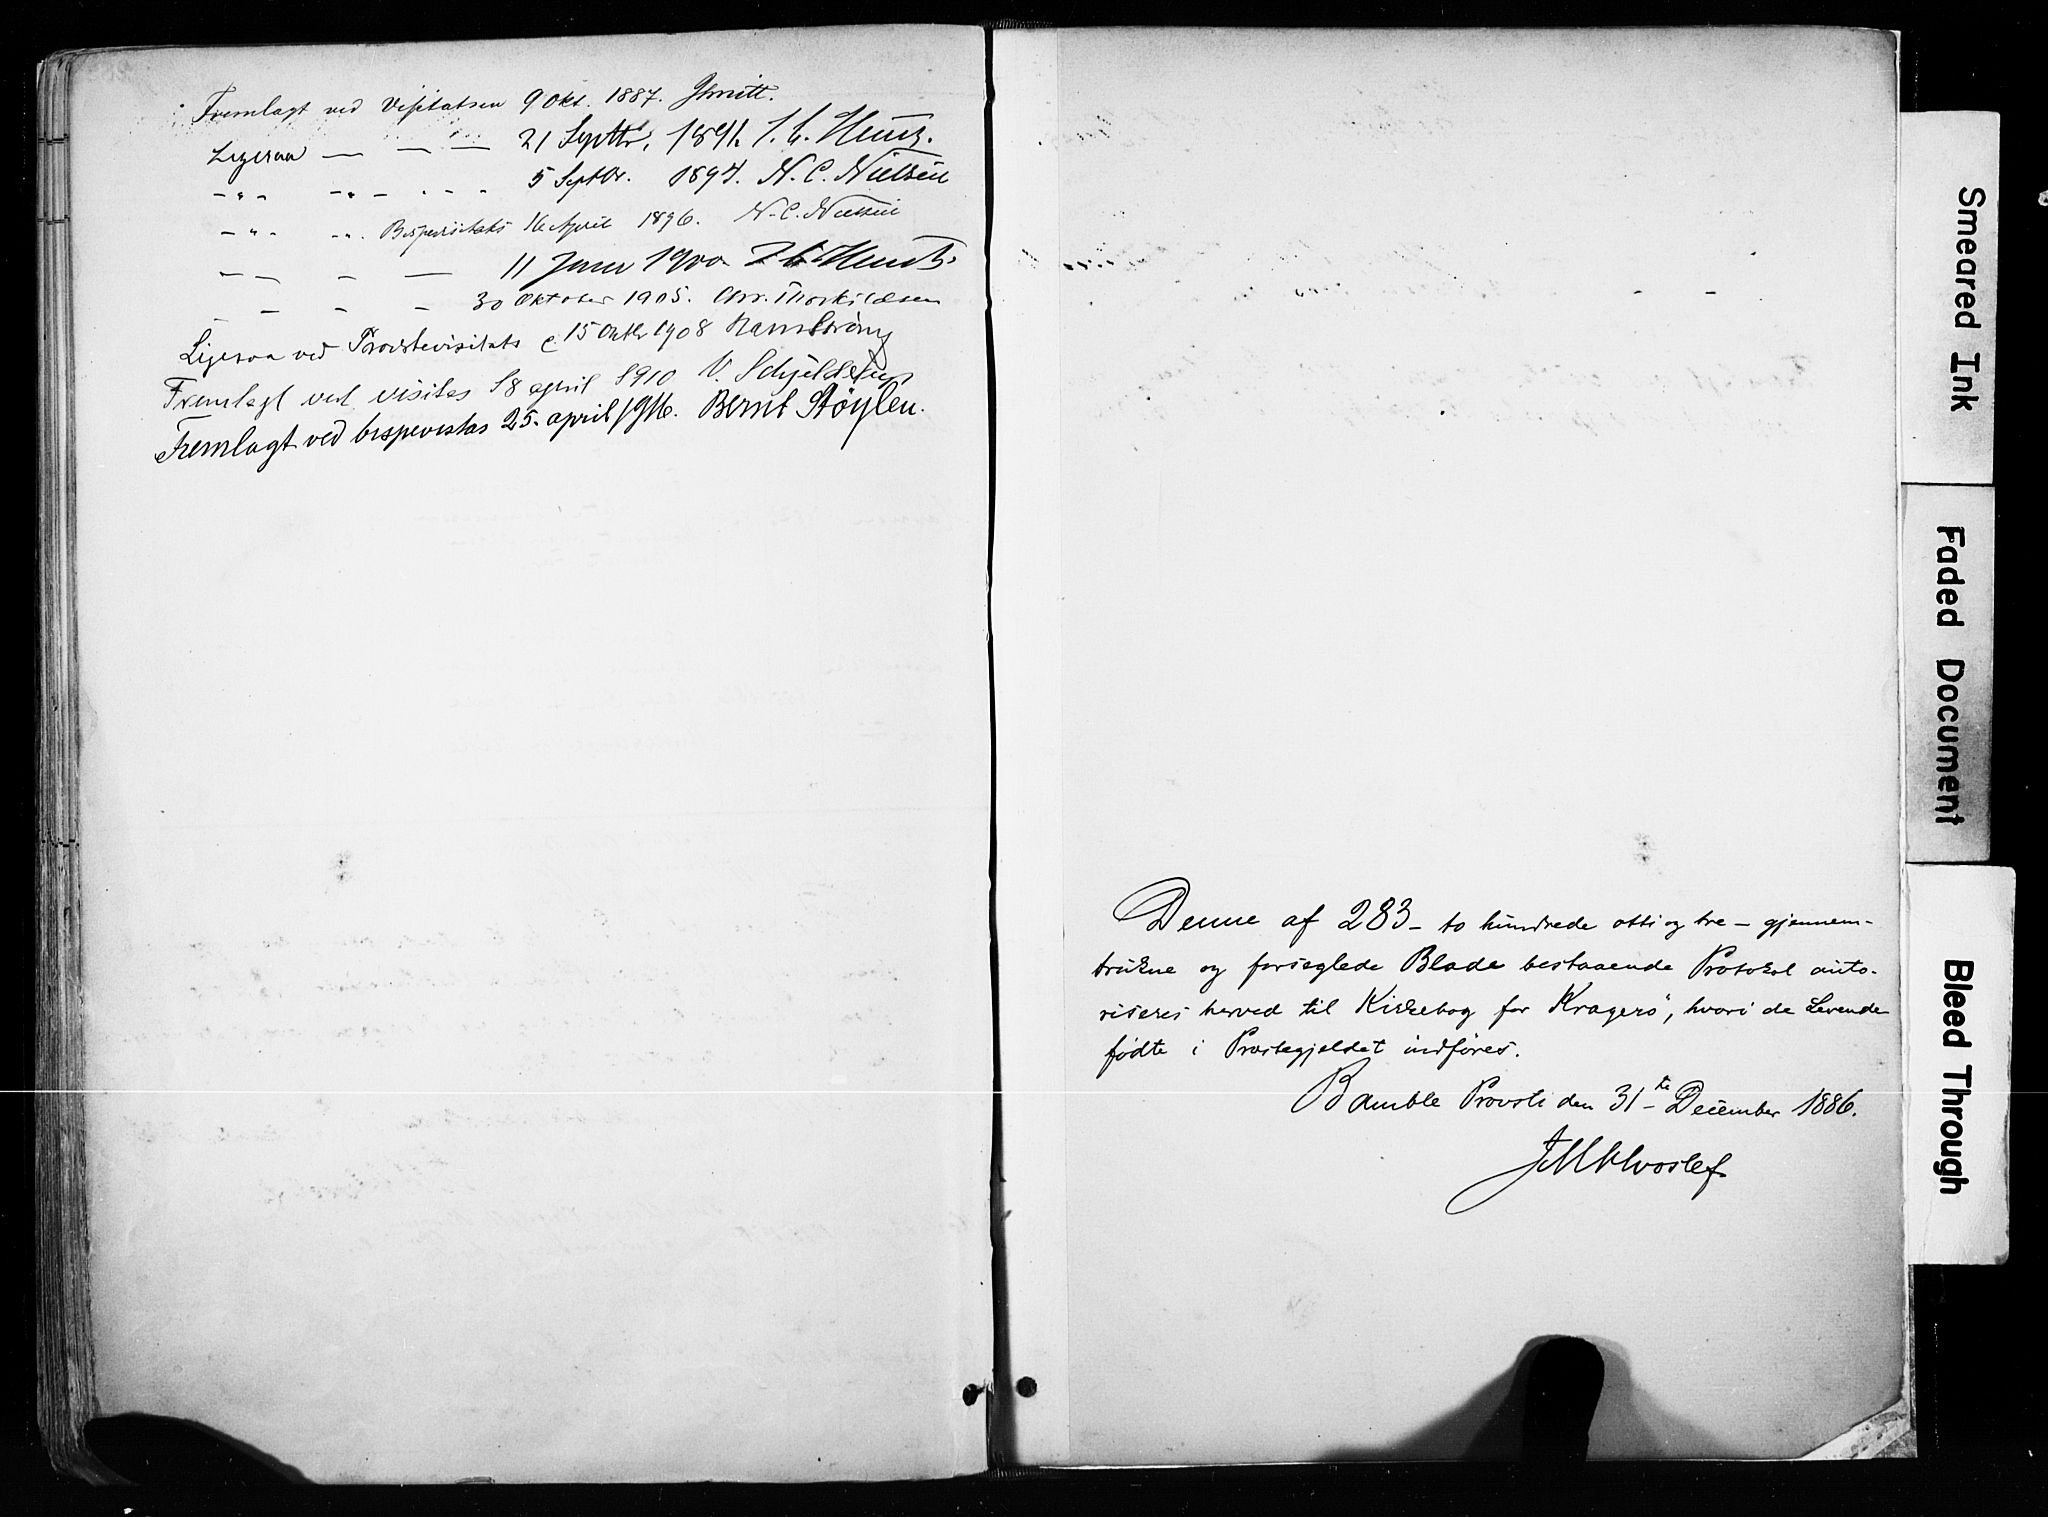 Fremlagt ved Visitatsen 9 Okt. 1887. Smitt.
Ligesaa — — — 21 Septbr. 1891. J. C. Heuch.
- " - - " - - - - 5 Septbr. 1894. N. C. Nielsen
- " - - " - Bispevisitats 16 April 1896. N. C. Nielsen
— — — — 11 Juni 1900 J. C. Heuch.
— — — — 30 Oktober 1905. Chr. Thorkildsen
Ligesaa ved Provstevisitats 15 Oktbr 1908
Fremlagt ved visitas 18 april 1910 V. Schjelderup
Fremlagt ved bispevisitas 25. april 1916. Bernt Støylen.
Denne af 283 - to hundrede otti og tre - gjennem-
trukne og forseglede Blade bestaaende Protokol auto-
riseres herved til Kirkebog for Kragerö, hvori de Levende
fødte i Præstegjeldet indføres.
Bamble Provsti den 31te December 1886.
Smeared Ink
Faded Document
Bleed Through